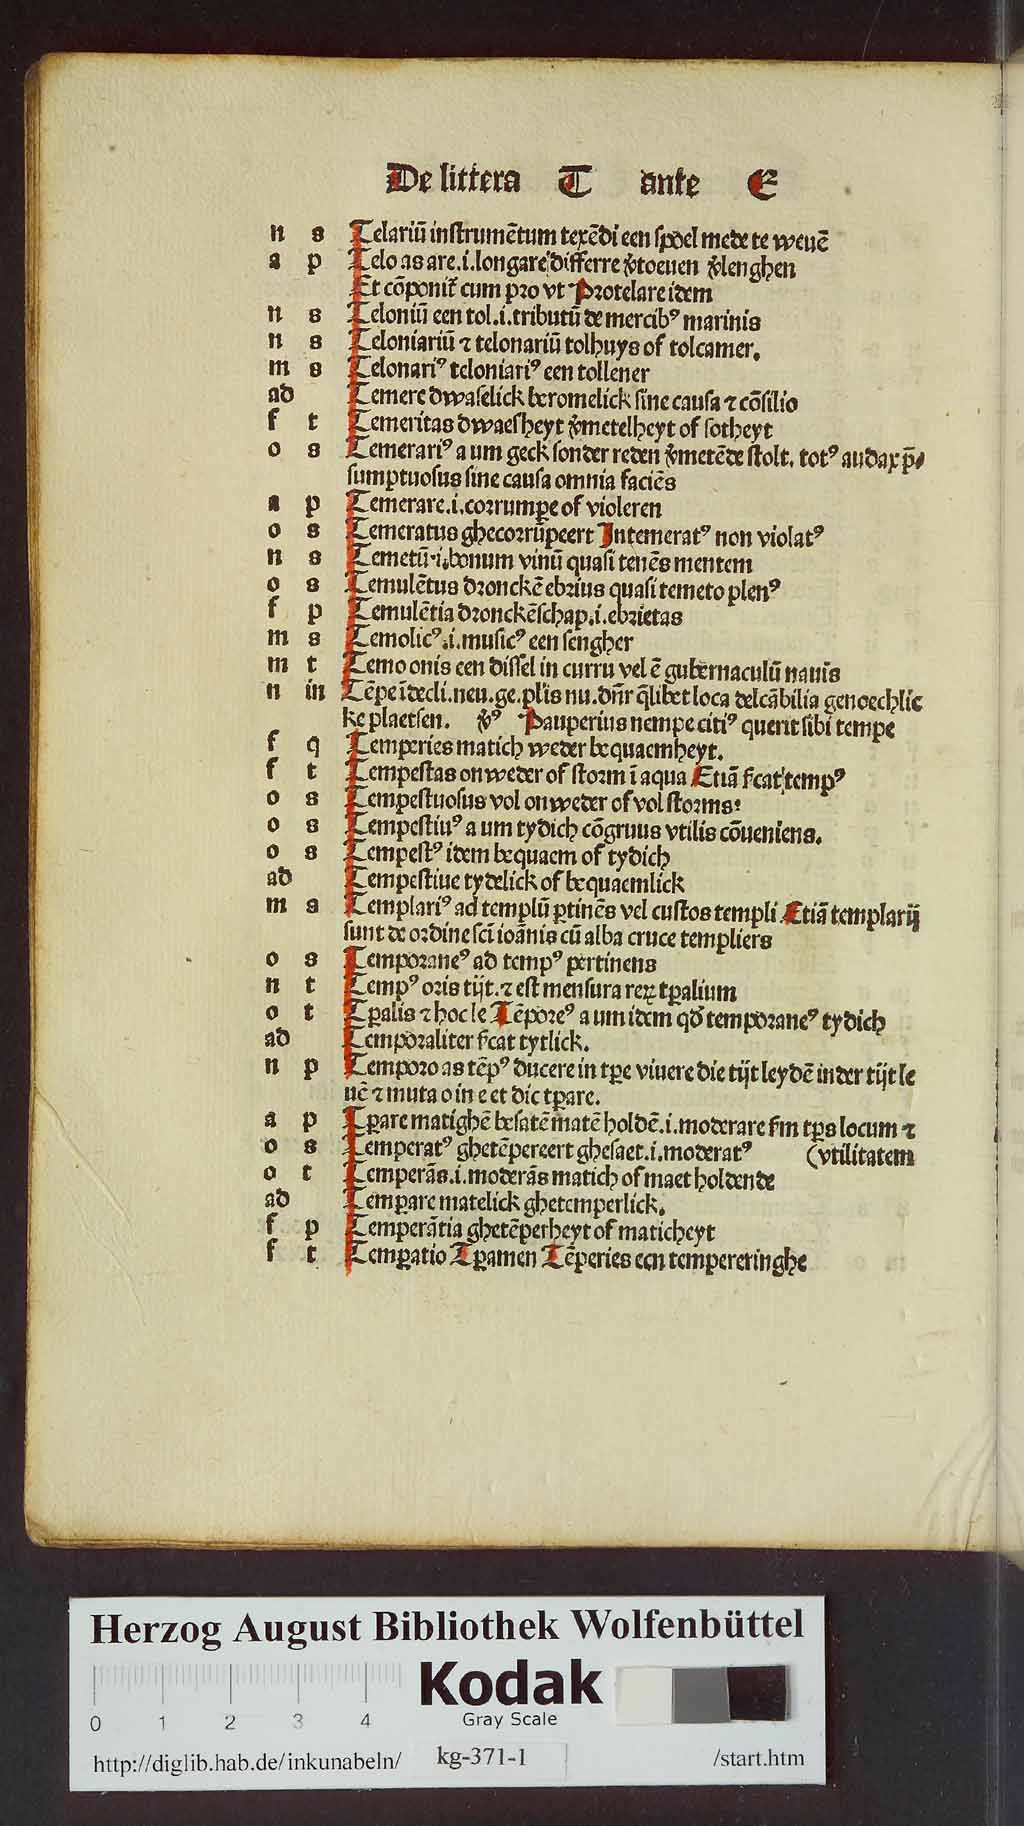 De littera T ante E
n s Telariū instrumētum texēdi een spoel mede te weuē
a p Telo as are .i. longare differre v̄toeuen v̄lenghen
Et cōponit̄ cum pro vt Protelare idem
n s Teloniū een tol .i. tributū de mercibꝰ marinis
n s Teloniariū ⁊ telonariū tolhuys of tolcamer.
m s Telonariꝰ teloniariꝰ een tollener
ad Temere dwaselick beromelick sine causa ⁊ cōsilio
f t Temeritas dwaesheyt v̄metelheyt of sotheyt
o s Temerariꝰ a um geck sonder reden v̄metēde stolt. totꝰ audax p̄⸗
sumptuosus sine causa omnia faciēs
a p Temerare .i. corrumpe̱ of violeren
o s Temeratus ghecorrūpeert Intemeratꝰ non violatꝰ
n s Temetū .i. bonum vinū quasi tenēs mentem
o s Temulētus dronckē ebrius quasi temeto plenꝰ
f p Temulētia dronckēschap .i. ebrietas
m s Temolicꝰ .i. musicꝰ een sengher
m t Temo onis een dissel in curru vel ē gubernaculū nauis
n in Tēpe īdecli. neu. ge. pl̄is nu. dn̄r q̄libet loca delcābilia genoechlic
ke plaetsen. v̄ꝰ Pauperius nempe citiꝰ querit sibi tempe
f q Temperies matich weder bequaemheyt.
f t Tempestas onweder of storm ī aqua Etiā s̄cat tempꝰ
o s Tempestuosus vol onweder of vol storms:
o s Tempestiuꝰ a um tydich cōgruus vtilis cōueniens.
o s Tempestꝰ idem bequaem of tydich
ad Tempestiue tydelick of bequaemlick
m s Templariꝰ ad templū ꝑtinēs vel custos templi Etiā templarij
sunt de ordine sc̄i ioānis cū alba cruce templiers
o s Temporaneꝰ ad tempꝰ pertinens
n t Tempꝰ oris tijt. ⁊ est mensura reꝝ tꝑalium
o t Tꝑalis ⁊ hoc le Tēporeꝰ a um idem qd̄ temporaneꝰ tydich
ad Temporaliter s̄cat tytlick.
n p Temporo as tēpꝰ ducere in tꝑe viuere die tijt leydē in der tijt le
uē ⁊ muta o in e et dic tꝑare.
a p Tꝑare matighē besatē matē holdē .i. moderare s̄m tꝑs locum ⁊
o s Temperatꝰ ghetēpereert ghesaet .i. moderatꝰ (vtilitatem
o t Temperās .i. moderās matich of maet holdende
ad Temꝑare matelick ghetemperlick.
f p Temperātia ghetēperheyt of maticheyt
f t Temꝑatio Tꝑamen Tēperies een tempereringhe
Herzog August Bibliothek Wolfenbüttel
Kodak
Gray Scale
0 1 2 3 4
http://diglib.hab.de/inkunabeln/ kg-371-1 /start.htm